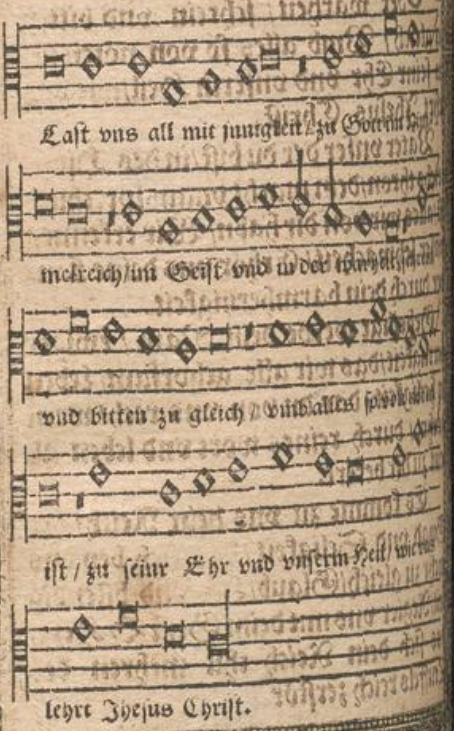 Last vns all mit junigkeit / zu Gott im
melreich / im Geist vnd in der warheit /
vnd bitten zu gleich / vmb alles so von
ist / zu seinr Ehr vnd vnserm Heil / wie
lehrt Jhesus Christ.